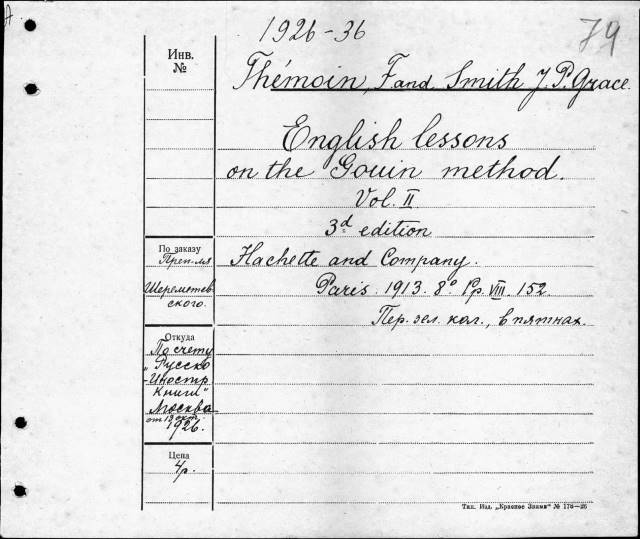 1926-36
79
Инв.
№
Thémoin, F. and Smith J. P. Grace.
English lessons
on the Gouin method.
Vol. II
3d edition
По заказу
Преп-ля
Шереметев
ского.
Hachette and Company.
Paris. 1913. 8° Pp. VIII. 152.
Пер. зел. кол., в пятнах.
Откуда
По счету
„Русско
-Иностр.
Книги"
Москва
от 19 окт.
1926.
Цена
4р.
Тип. Изд. „Красное Знамя" № 178—26